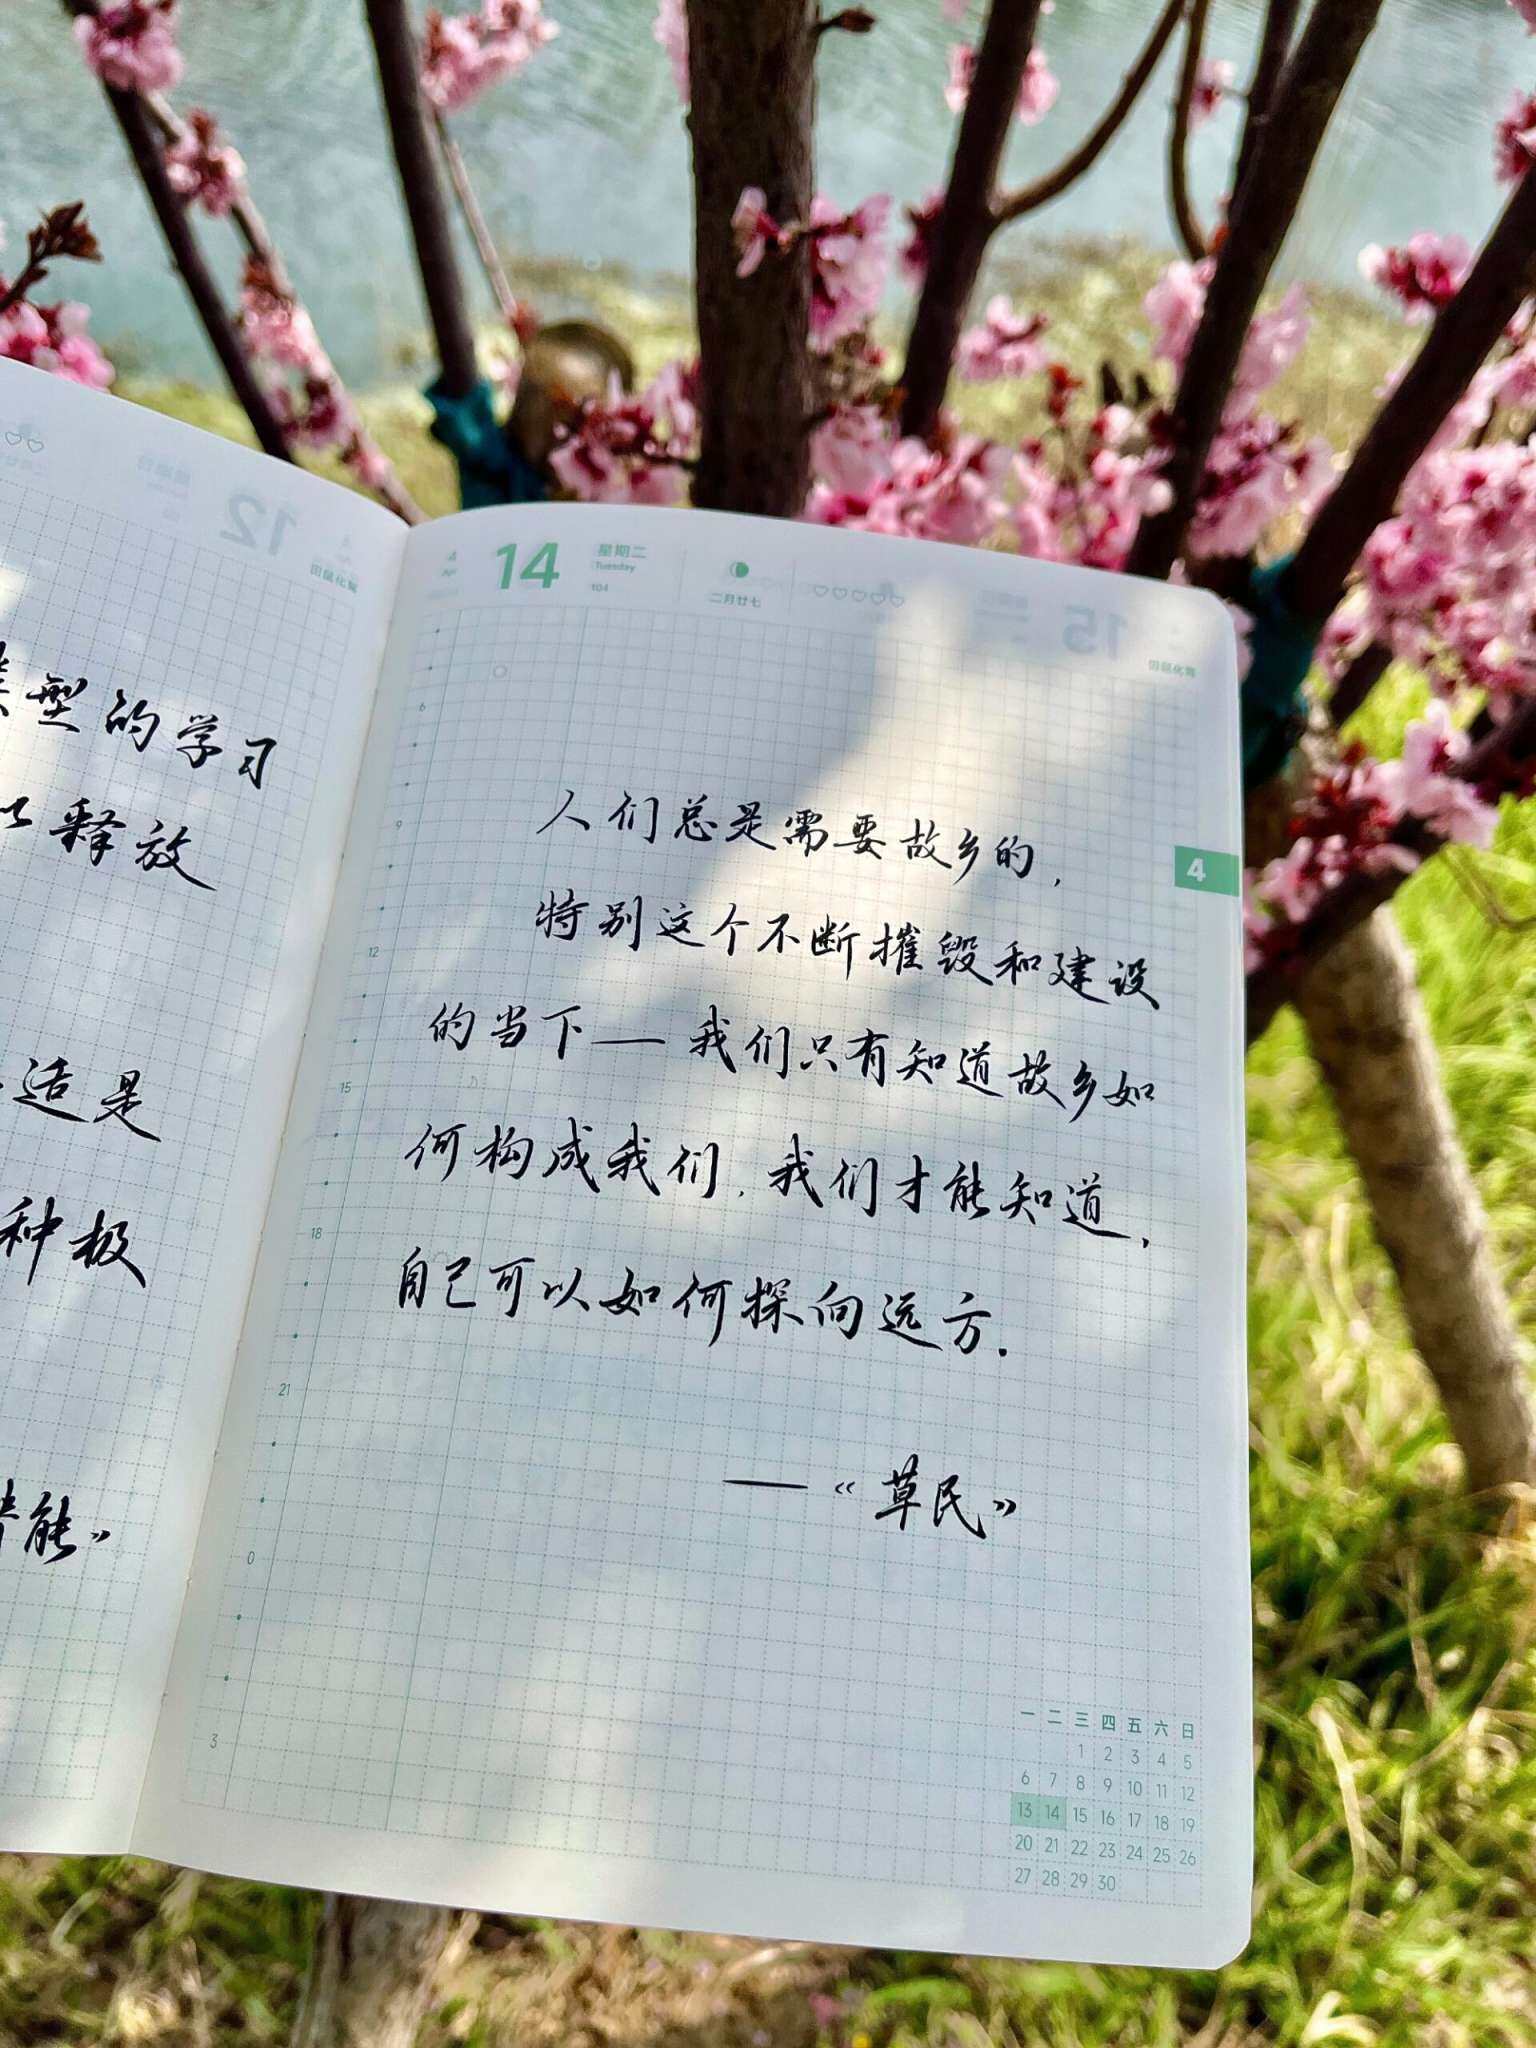 学习
释放
适是
种极
能》
12
田鼠化鴽
4
Apr
14
星期二
Tuesday
104
二月廿七
15
田鼠化鴽
人们总是需要故乡的,
特别这个不断摧毁和建设
的当下——我们只有知道故乡如
何构成我们,我们才能知道,
自己可以如何探向远方.
——《草民》
4
6
9
12
15
18
21
0
3
一 二 三 四 五 六 日
1 2 3 4 5
6 7 8 9 10 11 12
13 14 15 16 17 18 19
20 21 22 23 24 25 26
27 28 29 30